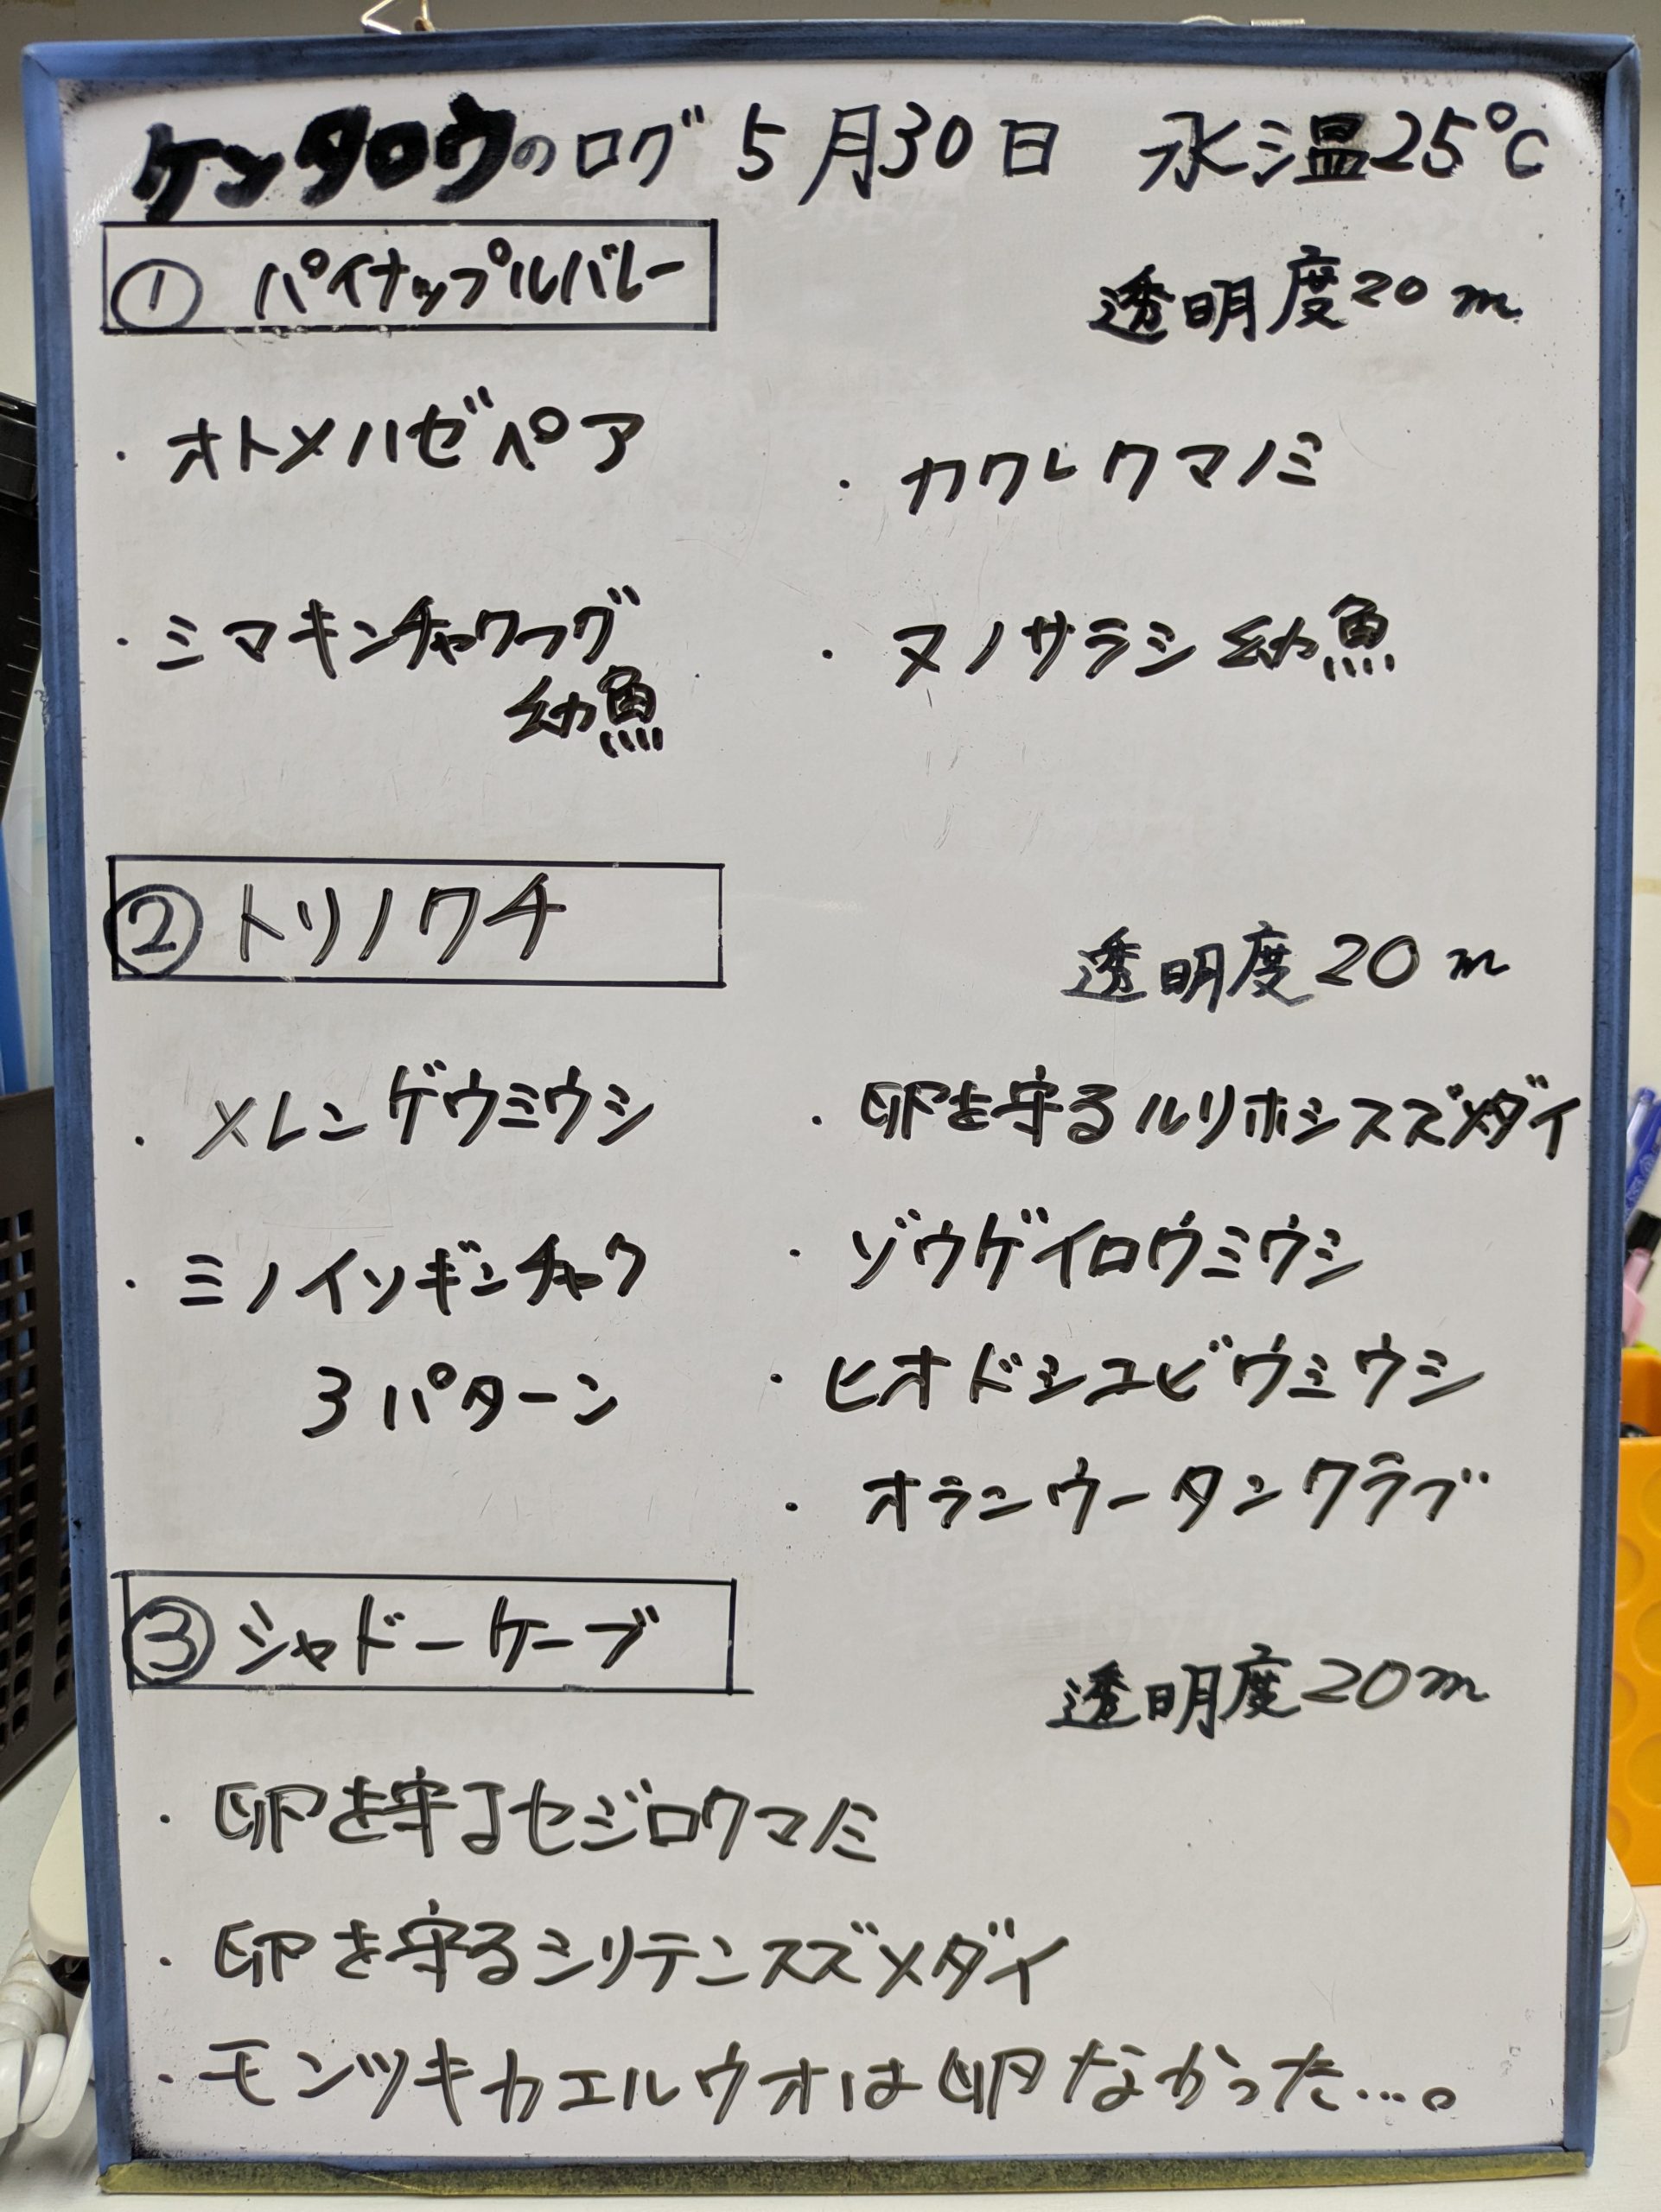 ケンタロウのログ 5月30日 水温25℃
① パイナップルバレー
透明度20m
・オトメハゼペア
・カクレクマノミ
・シマキンチャクフグ
幼魚
・ヌノサラシ幼魚
② トリノクチ
透明度20m
・メレンゲウミウシ
・卵を守るルリホシスズメダイ
・ミノイソギンチャク
3パターン
・ゾウゲイロウミウシ
・ヒオドシユビウミウシ
・オランウータンクラブ
③ シャドーケーブ
透明度20m
・卵を守るセジロクマノミ
・卵を守るシリテンスズメダイ
・モンツキカエルウオは卵なかった…。